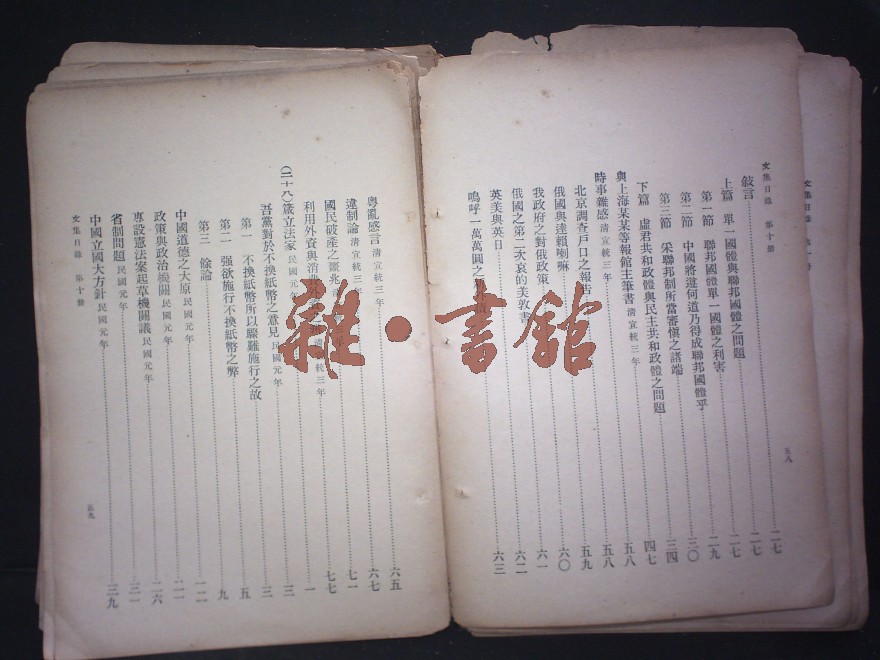 文集目錄 第十冊 五八
敍言 二七
上篇 單一國體與聯邦國體之問題 二七
第一節 聯邦國體單一國體之利害 二九
第二節 中國將遵何道乃得成聯邦國體乎 三〇
第三節 采聯邦制所當審愼之諸端 三四
下篇 虛君共和政體與民主共和政體之問題 四七
與上海某某等報館主筆書 清宣統三年 五八
時事雜感 清宣統三年 五八
北京調查戶口之報告 五九
俄國與達賴喇嘛 六〇
我政府之對俄政策 六一
俄國之第二次哀的美敦書 六二
英美與英日 六三
嗚呼一萬萬圓之
粵亂感言 清宣統三年 六五
違制論 清宣統三年 六七
國民破產之噩兆 七一
利用外資與消費外 統三年 七七
箴立法家 民國元年 一
(二十八)
吾黨對於不換紙幣之意見 民國元年 三
第一 不換紙幣所以驟難施行之故 五
第二 强欲施行不換紙幣之弊 九
第三 餘論 一二
中國道德之大原 民國元年
政策與政治機關 民國元年 二六
專設憲法案起草機關議 民國元年
省制問題 民國元年 三一
中國立國大方針 民國元年 三九
文集目錄 第十冊 五九
文集目錄
雜·書館